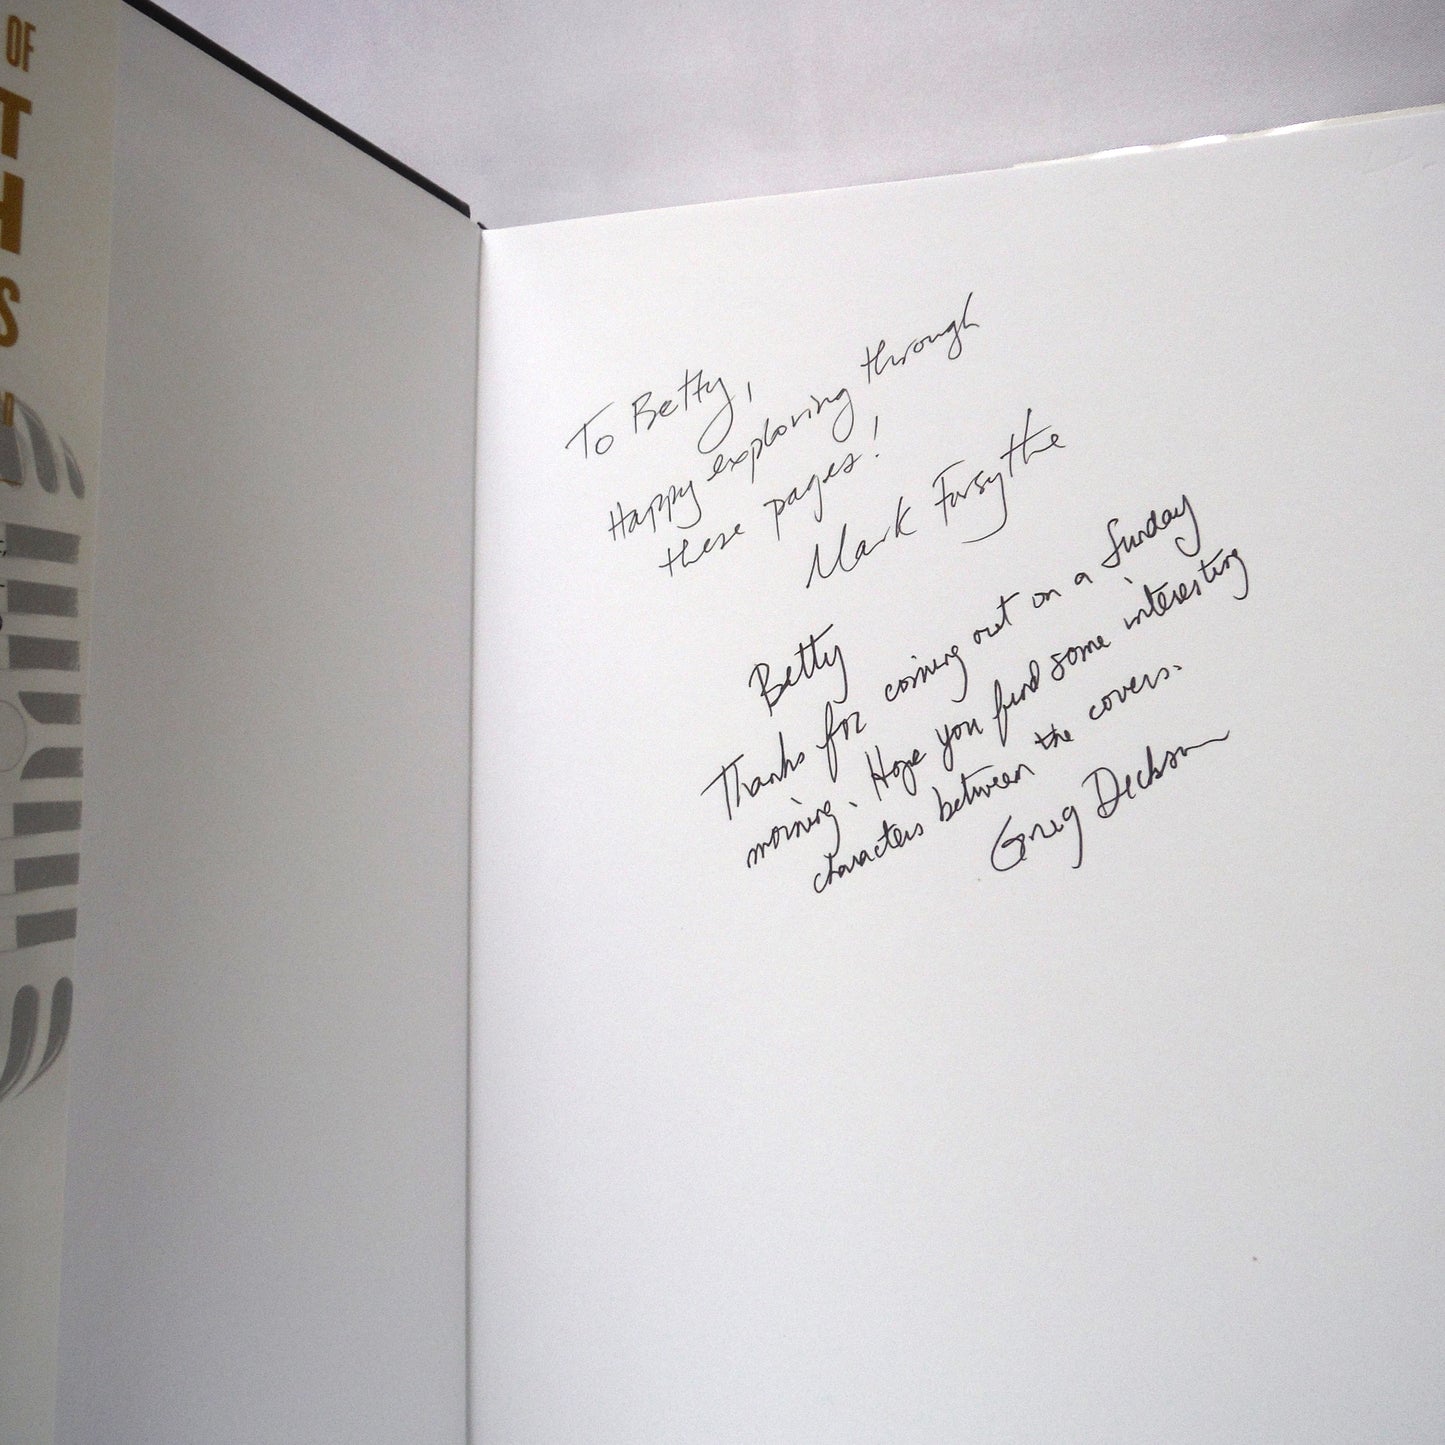 OF
T
H
S
To Betty,
Happy exploring through
these pages!
Mark Forsythe
Betty
Thanks for coming out on a Sunday
morning. Hope you find some interesting
characters between the covers.
Greg Dickson